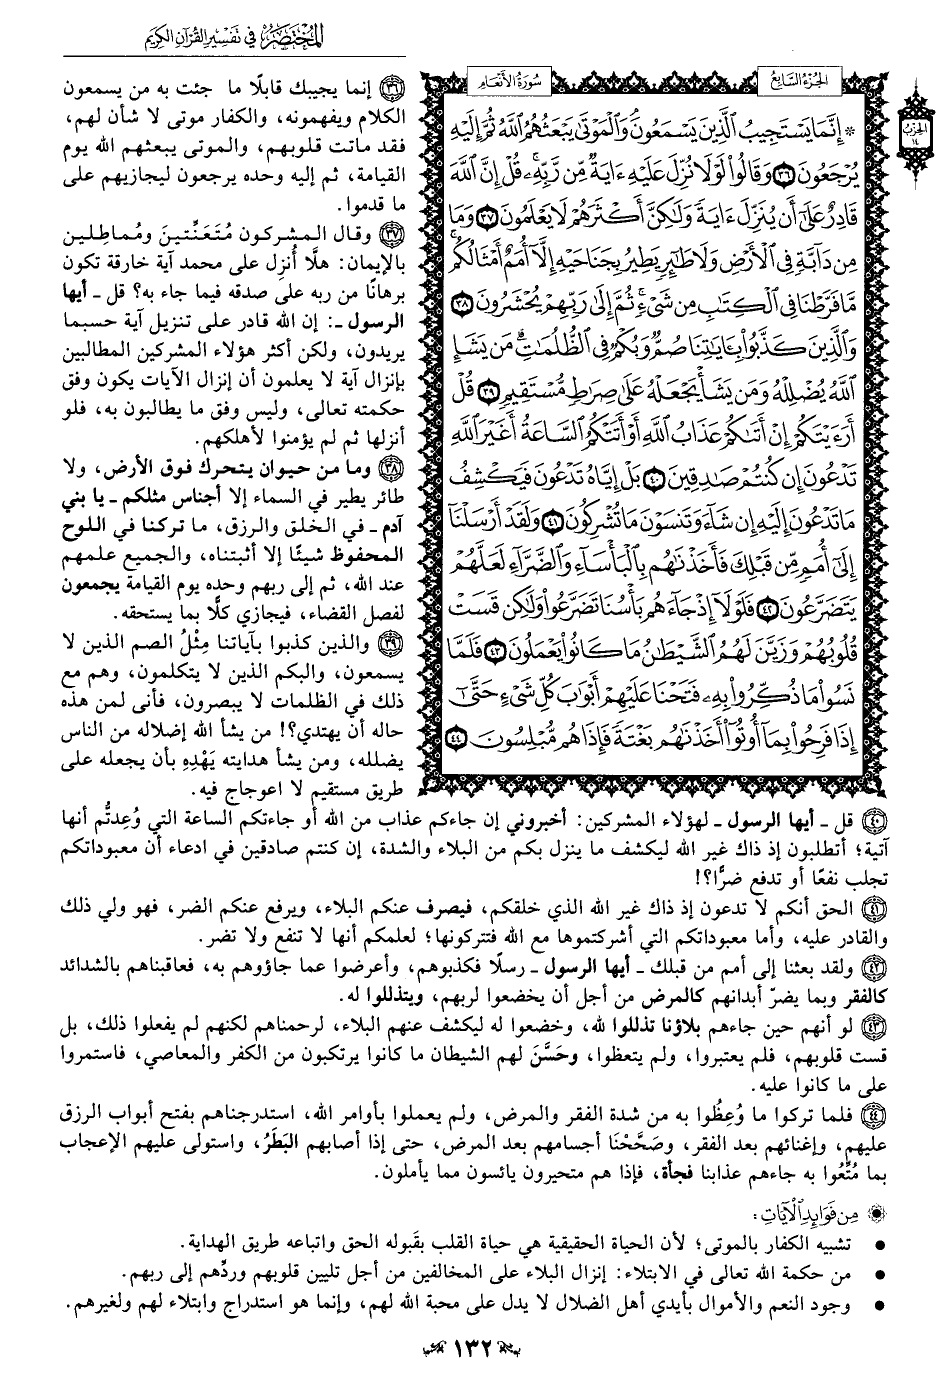 المختصر في تفسير القرآن الكريم
الجزء السابع
سورة الأنعام
الحزب
١٤
* إِنَّمَا يَسْتَجِيبُ الَّذِينَ يَسْمَعُونَ وَالْمَوْتَىٰ يَبْعَثُهُمُ اللَّهُ ثُمَّ إِلَيْهِ
يُرْجَعُونَ ٣٦ وَقَالُوا لَوْلَا نُزِّلَ عَلَيْهِ ءَايَةٌ مِّن رَّبِّهِۦ قُلْ إِنَّ اللَّهَ
قَادِرٌ عَلَىٰ أَن يُنَزِّلَ ءَايَةً وَلَٰكِنَّ أَكْثَرَهُمْ لَا يَعْلَمُونَ ٣٧ وَمَا
مِن دَآبَّةٍ فِي الْأَرْضِ وَلَا طَٰٓئِرٍ يَطِيرُ بِجَنَاحَيْهِ إِلَّآ أُمَمٌ أَمْثَالُكُم
مَّا فَرَّطْنَا فِي الْكِتَٰبِ مِن شَيْءٍ ثُمَّ إِلَىٰ رَبِّهِمْ يُحْشَرُونَ ٣٨
وَالَّذِينَ كَذَّبُوا بِـَٔايَٰتِنَا صُمٌّ وَبُكْمٌ فِي الظُّلُمَٰتِ مَن يَشَإِ
اللَّهُ يُضْلِلْهُ وَمَن يَشَأْ يَجْعَلْهُ عَلَىٰ صِرَٰطٍ مُّسْتَقِيمٍ ٣٩ قُلْ
أَرَءَيْتَكُمْ إِنْ أَتَىٰكُمْ عَذَابُ اللَّهِ أَوْ أَتَتْكُمُ السَّاعَةُ أَغَيْرَ اللَّهِ
تَدْعُونَ إِن كُنتُمْ صَٰدِقِينَ ٤٠ بَلْ إِيَّاهُ تَدْعُونَ فَيَكْشِفُ
مَا تَدْعُونَ إِلَيْهِ إِن شَآءَ وَتَنسَوْنَ مَا تُشْرِكُونَ ٤١ وَلَقَدْ أَرْسَلْنَآ
إِلَىٰٓ أُمَمٍ مِّن قَبْلِكَ فَأَخَذْنَٰهُم بِالْبَأْسَآءِ وَالضَّرَّآءِ لَعَلَّهُمْ
يَتَضَرَّعُونَ ٤٢ فَلَوْلَآ إِذْ جَآءَهُم بَأْسُنَا تَضَرَّعُوا وَلَٰكِن قَسَتْ
قُلُوبُهُمْ وَزَيَّنَ لَهُمُ الشَّيْطَٰنُ مَا كَانُوا يَعْمَلُونَ ٤٣ فَلَمَّا
نَسُوا مَا ذُكِّرُوا بِهِۦ فَتَحْنَا عَلَيْهِمْ أَبْوَٰبَ كُلِّ شَيْءٍ حَتَّىٰٓ
إِذَا فَرِحُوا بِمَآ أُوتُوٓا أَخَذْنَٰهُم بَغْتَةً فَإِذَا هُم مُّبْلِسُونَ ٤٤
٣٦ إنما يجيبك قابلًا ما جئت به من يسمعون
الكلام ويفهمونه، والكفار موتى لا شأن لهم،
فقد ماتت قلوبهم، والموتى يبعثهم الله يوم
القيامة، ثم إليه وحده يرجعون ليجازيهم على
ما قدموا.
٣٧ وقال المشركون مُتَعَنِّتينَ ومُماطِلين
بالإيمان: هلَّا أُنزِل على محمد آية خارقة تكون
برهانًا من ربه على صدقه فيما جاء به؟ قل ـ أيها
الرسول ـ: إن الله قادر على تنزيل آية حسبما
يريدون، ولكن أكثر هؤلاء المشركين المطالبين
بإنزال آية لا يعلمون أن إنزال الآيات يكون وفق
حكمته تعالى، وليس وفق ما يطالبون به، فلو
أنزلها ثم لم يؤمنوا لأهلكهم.
٣٨ وما من حيوان يتحرك فوق الأرض، ولا
طائر يطير في السماء إلا أجناس مثلكم ـ يا بني
آدم ـ في الخلق والرزق، ما تركنا في اللوح
المحفوظ شيئًا إلا أثبتناه، والجميع علمهم
عند الله، ثم إلى ربهم وحده يوم القيامة يجمعون
لفصل القضاء، فيجازي كلًّا بما يستحقه.
٣٩ والذين كذبوا بآياتنا مِثْلُ الصم الذين لا
يسمعون، والبكم الذين لا يتكلمون، وهم مع
ذلك في الظلمات لا يبصرون، فأنى لمن هذه
حاله أن يهتدي؟! من يشأ الله إضلاله من الناس
يضلله، ومن يشأ هدايته يَهْدِهِ بأن يجعله على
طريق مستقيم لا اعوجاج فيه.
٤٠ قل ـ أيها الرسول ـ لهؤلاء المشركين: أخبروني إن جاءكم عذاب من الله أو جاءتكم الساعة التي وُعِدتُّم أنها
آتية؛ أتطلبون إذ ذاك غير الله ليكشف ما ينزل بكم من البلاء والشدة، إن كنتم صادقين في ادعاء أن معبوداتكم
تجلب نفعًا أو تدفع ضرًّا؟!
٤١ الحق أنكم لا تدعون إذ ذاك غير الله الذي خلقكم، فيصرف عنكم البلاء، ويرفع عنكم الضر، فهو ولي ذلك
والقادر عليه، وأما معبوداتكم التي أشركتموها مع الله فتتركونها؛ لعلمكم أنها لا تنفع ولا تضر.
٤٢ ولقد بعثنا إلى أمم من قبلك ـ أيها الرسول ـ رسلًا فكذبوهم، وأعرضوا عما جاؤوهم به، فعاقبناهم بالشدائد
كالفقر وبما يضرّ أبدانهم كالمرض من أجل أن يخضعوا لربهم، ويتذللوا له.
٤٣ لو أنهم حين جاءهم بلاؤنا تذللوا لله، وخضعوا له ليكشف عنهم البلاء، لرحمناهم لكنهم لم يفعلوا ذلك، بل
قست قلوبهم، فلم يعتبروا، ولم يتعظوا، وحَسَّنَ لهم الشيطان ما كانوا يرتكبون من الكفر والمعاصي، فاستمروا
على ما كانوا عليه.
٤٤ فلما تركوا ما وُعِظُوا به من شدة الفقر والمرض، ولم يعملوا بأوامر الله، استدرجناهم بفتح أبواب الرزق
عليهم، وإغنائهم بعد الفقر، وصَحَّحْنَا أجسامهم بعد المرض، حتى إذا أصابهم البَطَرُ، واستولى عليهم الإعجاب
بما مُتِّعُوا به جاءهم عذابنا فجأة، فإذا هم متحيرون يائسون مما يأملون.
من فوائد الآيات:
● تشبيه الكفار بالموتى؛ لأن الحياة الحقيقية هي حياة القلب بقَبوله الحق واتباعه طريق الهداية.
● من حكمة الله تعالى في الابتلاء: إنزال البلاء على المخالفين من أجل تليين قلوبهم وردِّهم إلى ربهم.
● وجود النعم والأموال بأيدي أهل الضلال لا يدل على محبة الله لهم، وإنما هو استدراج وابتلاء لهم ولغيرهم.
١٣٢